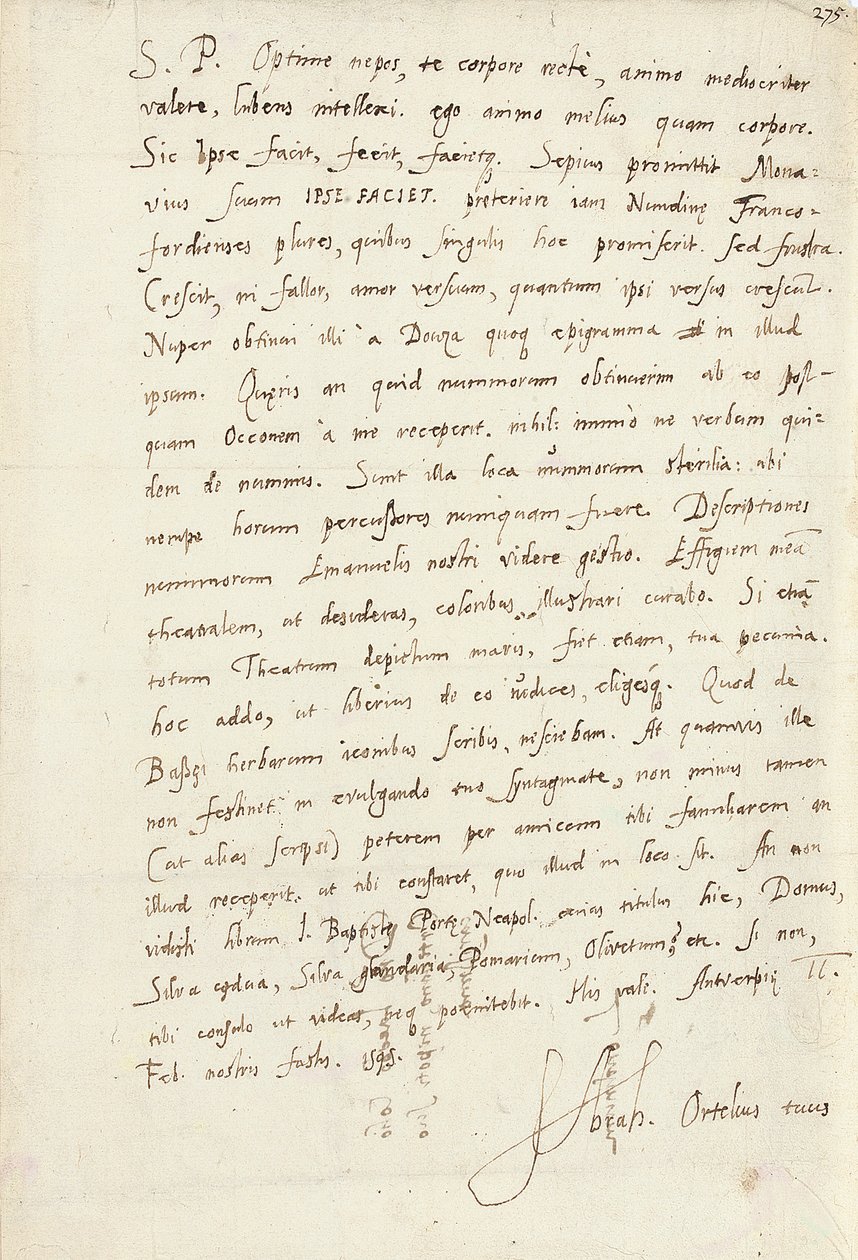 275.
S. P. Optime nepos, te corpore recte, animo mediocriter
valere, lubens intellexi. ego animo melius quam corpore.
Sic Ipse facit, fecit, facietq. Sepius promittit Mona=
vius suum IPSE FACIET. preteriere iam Nundinę Franco=
fordienses plures, quibus singulis hoc promiserit. sed frustra.
Crescit, ni fallor, amor versuum, quantum ipsi versus crescūt.
Nuper obtinui illi à Douza quoq epigramma in illud
ipsum. Quęris an quid nummorum obtinuerim ab eo post-
quam Occonem à me receperit. nihil: immò ne verbum qui=
dem de nummis. Sunt illa loca nummorum sterilia: ubi
nempe horum percußores numquam fuere. Descriptiones
nummorum Emanuelis nostri videre gestio. Effigiem meā
theatralem, ut desideras, coloribus illustrari curabo. Si etiā
totum Theatrum depictum mavis, fiet etiam, tua pecunia.
hoc addo, ut liberius de eo iudices, eligesq. Quod de
Baßęi herbarum iconibus scribis, nesciebam. At quamvis ille
non festinet in evulgando tuo syntagmate, non minus tamen
(ut alias scripsi) peterem per amicum tibi familiarem an
illud receperit. ut tibi constaret, quo illud in loco sit. An non
vidisti librum I. Baptistę Portę Neapol. cuius titulus hic, Domus,
Silva cędua, Silva glandaria, Pomarium, Olivetum, etc. si non,
tibi consulo ut videas, neq poenitebit. His vale. Antverpię II.
Feb. nostris fastis. 1595.
Abrah. Ortelius tuus